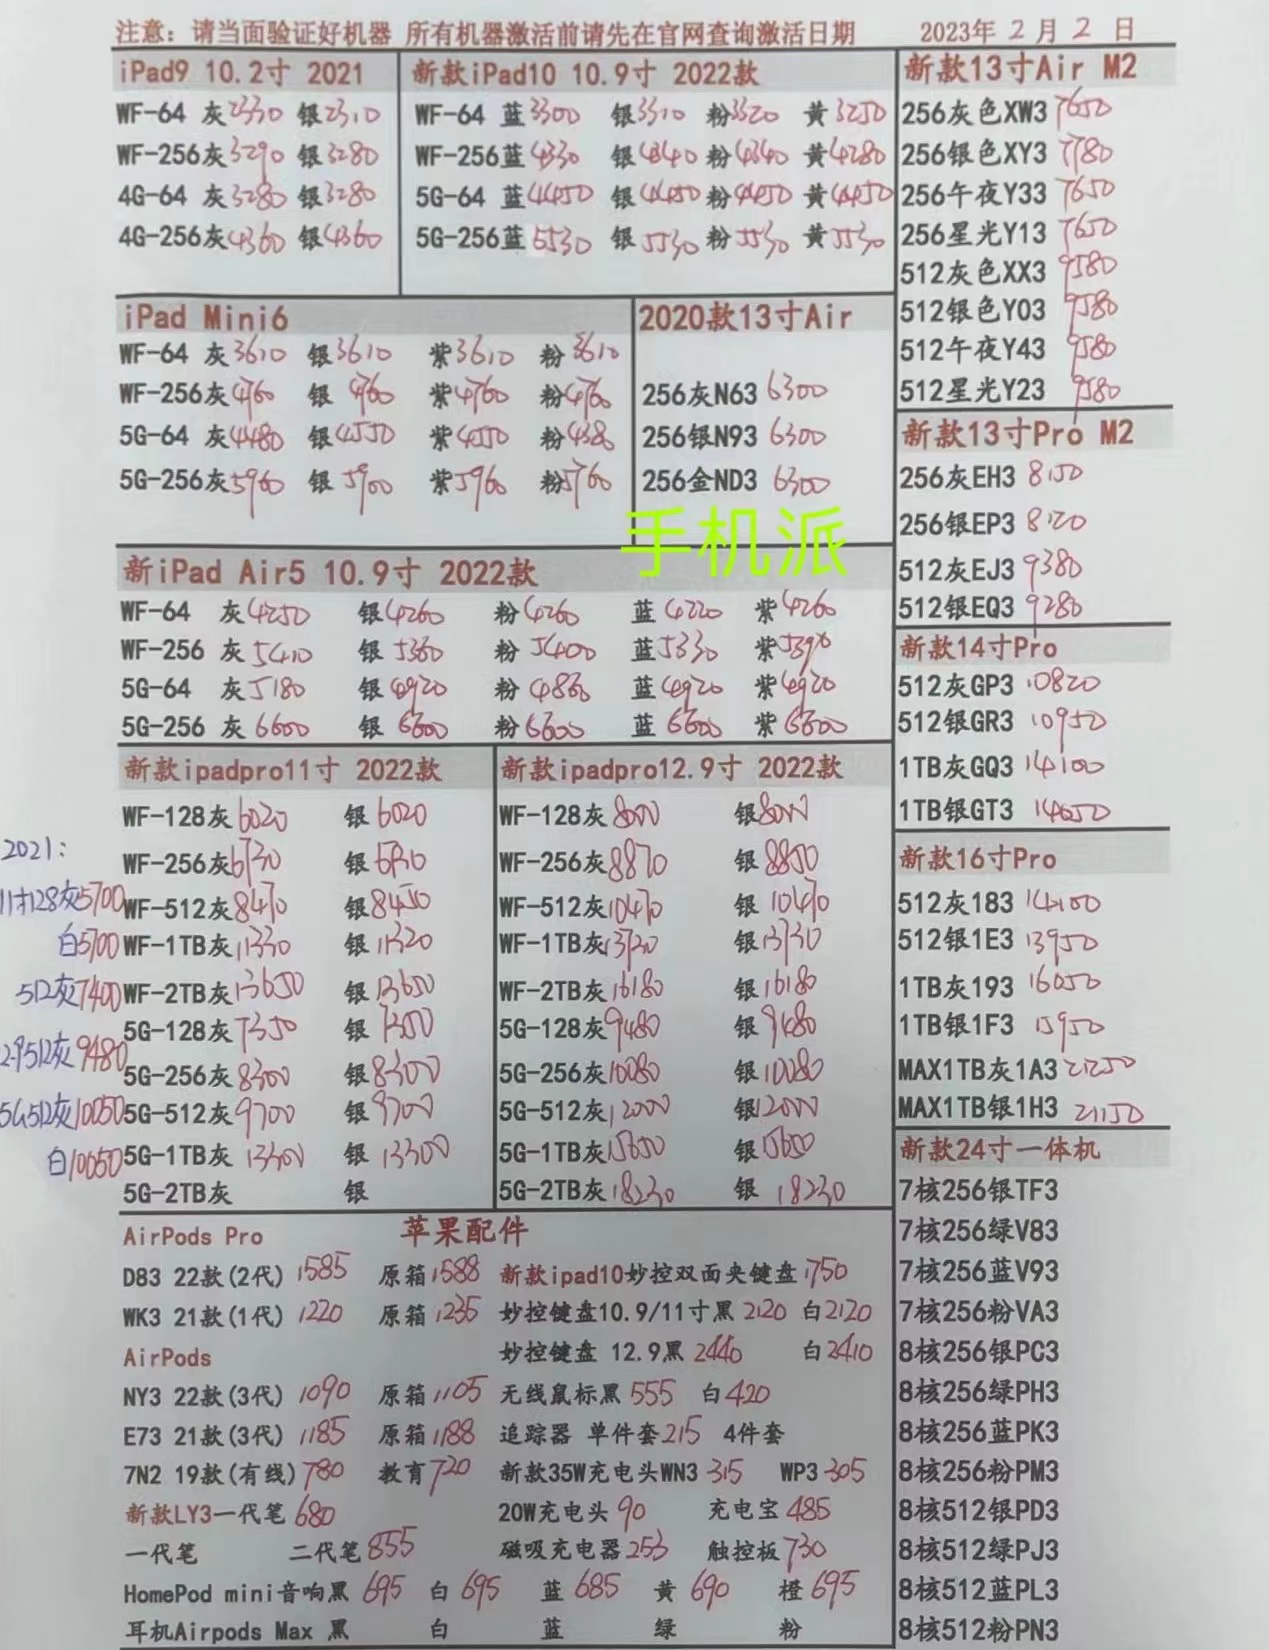 注意：请当面验证好机器 所有机器激活前请先在官网查询激活日期 2023年 2 月 2 日
iPad9 10.2寸 2021
WF-64 灰2330 银2310
WF-256灰3290 银3280
4G-64 灰3280 银3280
4G-256灰4360 银4360
新款iPad10 10.9寸 2022款
WF-64 蓝3300 银3310 粉3320 黄3250
WF-256蓝4330 银4340 粉4340 黄4280
5G-64 蓝4450 银4450 粉4450 黄4450
5G-256蓝5530 银5530 粉5530 黄5530
iPad Mini6
WF-64 灰3610 银3610 紫3610 粉3610
WF-256灰4760 银4760 紫4760 粉4760
5G-64 灰4480 银4550 紫4550 粉4380
5G-256灰5960 银5900 紫5960 粉5760
2020款13寸Air
256灰N63 6300
256银N93 6300
256金ND3 6300
手机派
新iPad Air5 10.9寸 2022款
WF-64 灰4250 银4260 粉4260 蓝4220 紫4260
WF-256 灰5410 银5360 粉5400 蓝5330 紫5390
5G-64 灰5180 银4920 粉4860 蓝4920 紫4920
5G-256 灰6600 银6600 粉6600 蓝6600 紫6600
新款ipadpro11寸 2022款
WF-128灰6020 银6020
WF-256灰6730 银
WF-512灰8470 银8450
WF-1TB灰11330 银11320
WF-2TB灰13650 银13650
5G-128灰7350 银7350
5G-256灰8300 银8300
5G-512灰9700 银9700
5G-1TB灰13300 银13300
5G-2TB灰 银
2021：
11寸128灰5700
白5700
512灰7400
512灰9480
5G512灰10050
白10050
新款ipadpro12.9寸 2022款
WF-128灰8000 银8000
WF-256灰8870 银8850
WF-512灰10470 银10470
WF-1TB灰13730 银13730
WF-2TB灰16180 银16180
5G-128灰9480 银9480
5G-256灰10080 银10080
5G-512灰12000 银12000
5G-1TB灰15650 银15600
5G-2TB灰18230 银18230
苹果配件
AirPods Pro
D83 22款(2代) 1585 原箱1588
WK3 21款(1代) 1220 原箱1235
AirPods
NY3 22款(3代) 1090 原箱1105
E73 21款(3代) 1185 原箱1188
7N2 19款(有线)780 教育720
新款LY3一代笔 680
一代笔 二代笔855
HomePod mini音响黑 695 白 695 蓝 685 黄 690 橙 695
耳机Airpods Max 黑 白 蓝 绿 粉
新款ipad10妙控双面夹键盘1750
妙控键盘10.9/11寸黑 2120 白2120
妙控键盘 12.9黑 2440 白2410
无线鼠标黑 555 白 420
追踪器 单件套215 4件套
新款35W充电头WN3 315 WP3 305
20W充电头 90 充电宝 485
磁吸充电器253 触控板730
新款13寸Air M2
256灰色XW3 7650
256银色XY3 7780
256午夜Y33 7650
256星光Y13 7650
512灰色XX3 9580
512银色Y03 9580
512午夜Y43 9580
512星光Y23 9580
新款13寸Pro M2
256灰EH3 8150
256银EP3 8120
512灰EJ3 9380
512银EQ3 9280
新款14寸Pro
512灰GP3 10820
512银GR3 10950
1TB灰GQ3 14100
1TB银GT3 14050
新款16寸Pro
512灰183 14100
512银1E3 13950
1TB灰193 16050
1TB银1F3 15950
MAX1TB灰1A3 21250
MAX1TB银1H3 21150
新款24寸一体机
7核256银TF3
7核256绿V83
7核256蓝V93
7核256粉VA3
8核256银PC3
8核256绿PH3
8核256蓝PK3
8核256粉PM3
8核512银PD3
8核512绿PJ3
8核512蓝PL3
8核512粉PN3